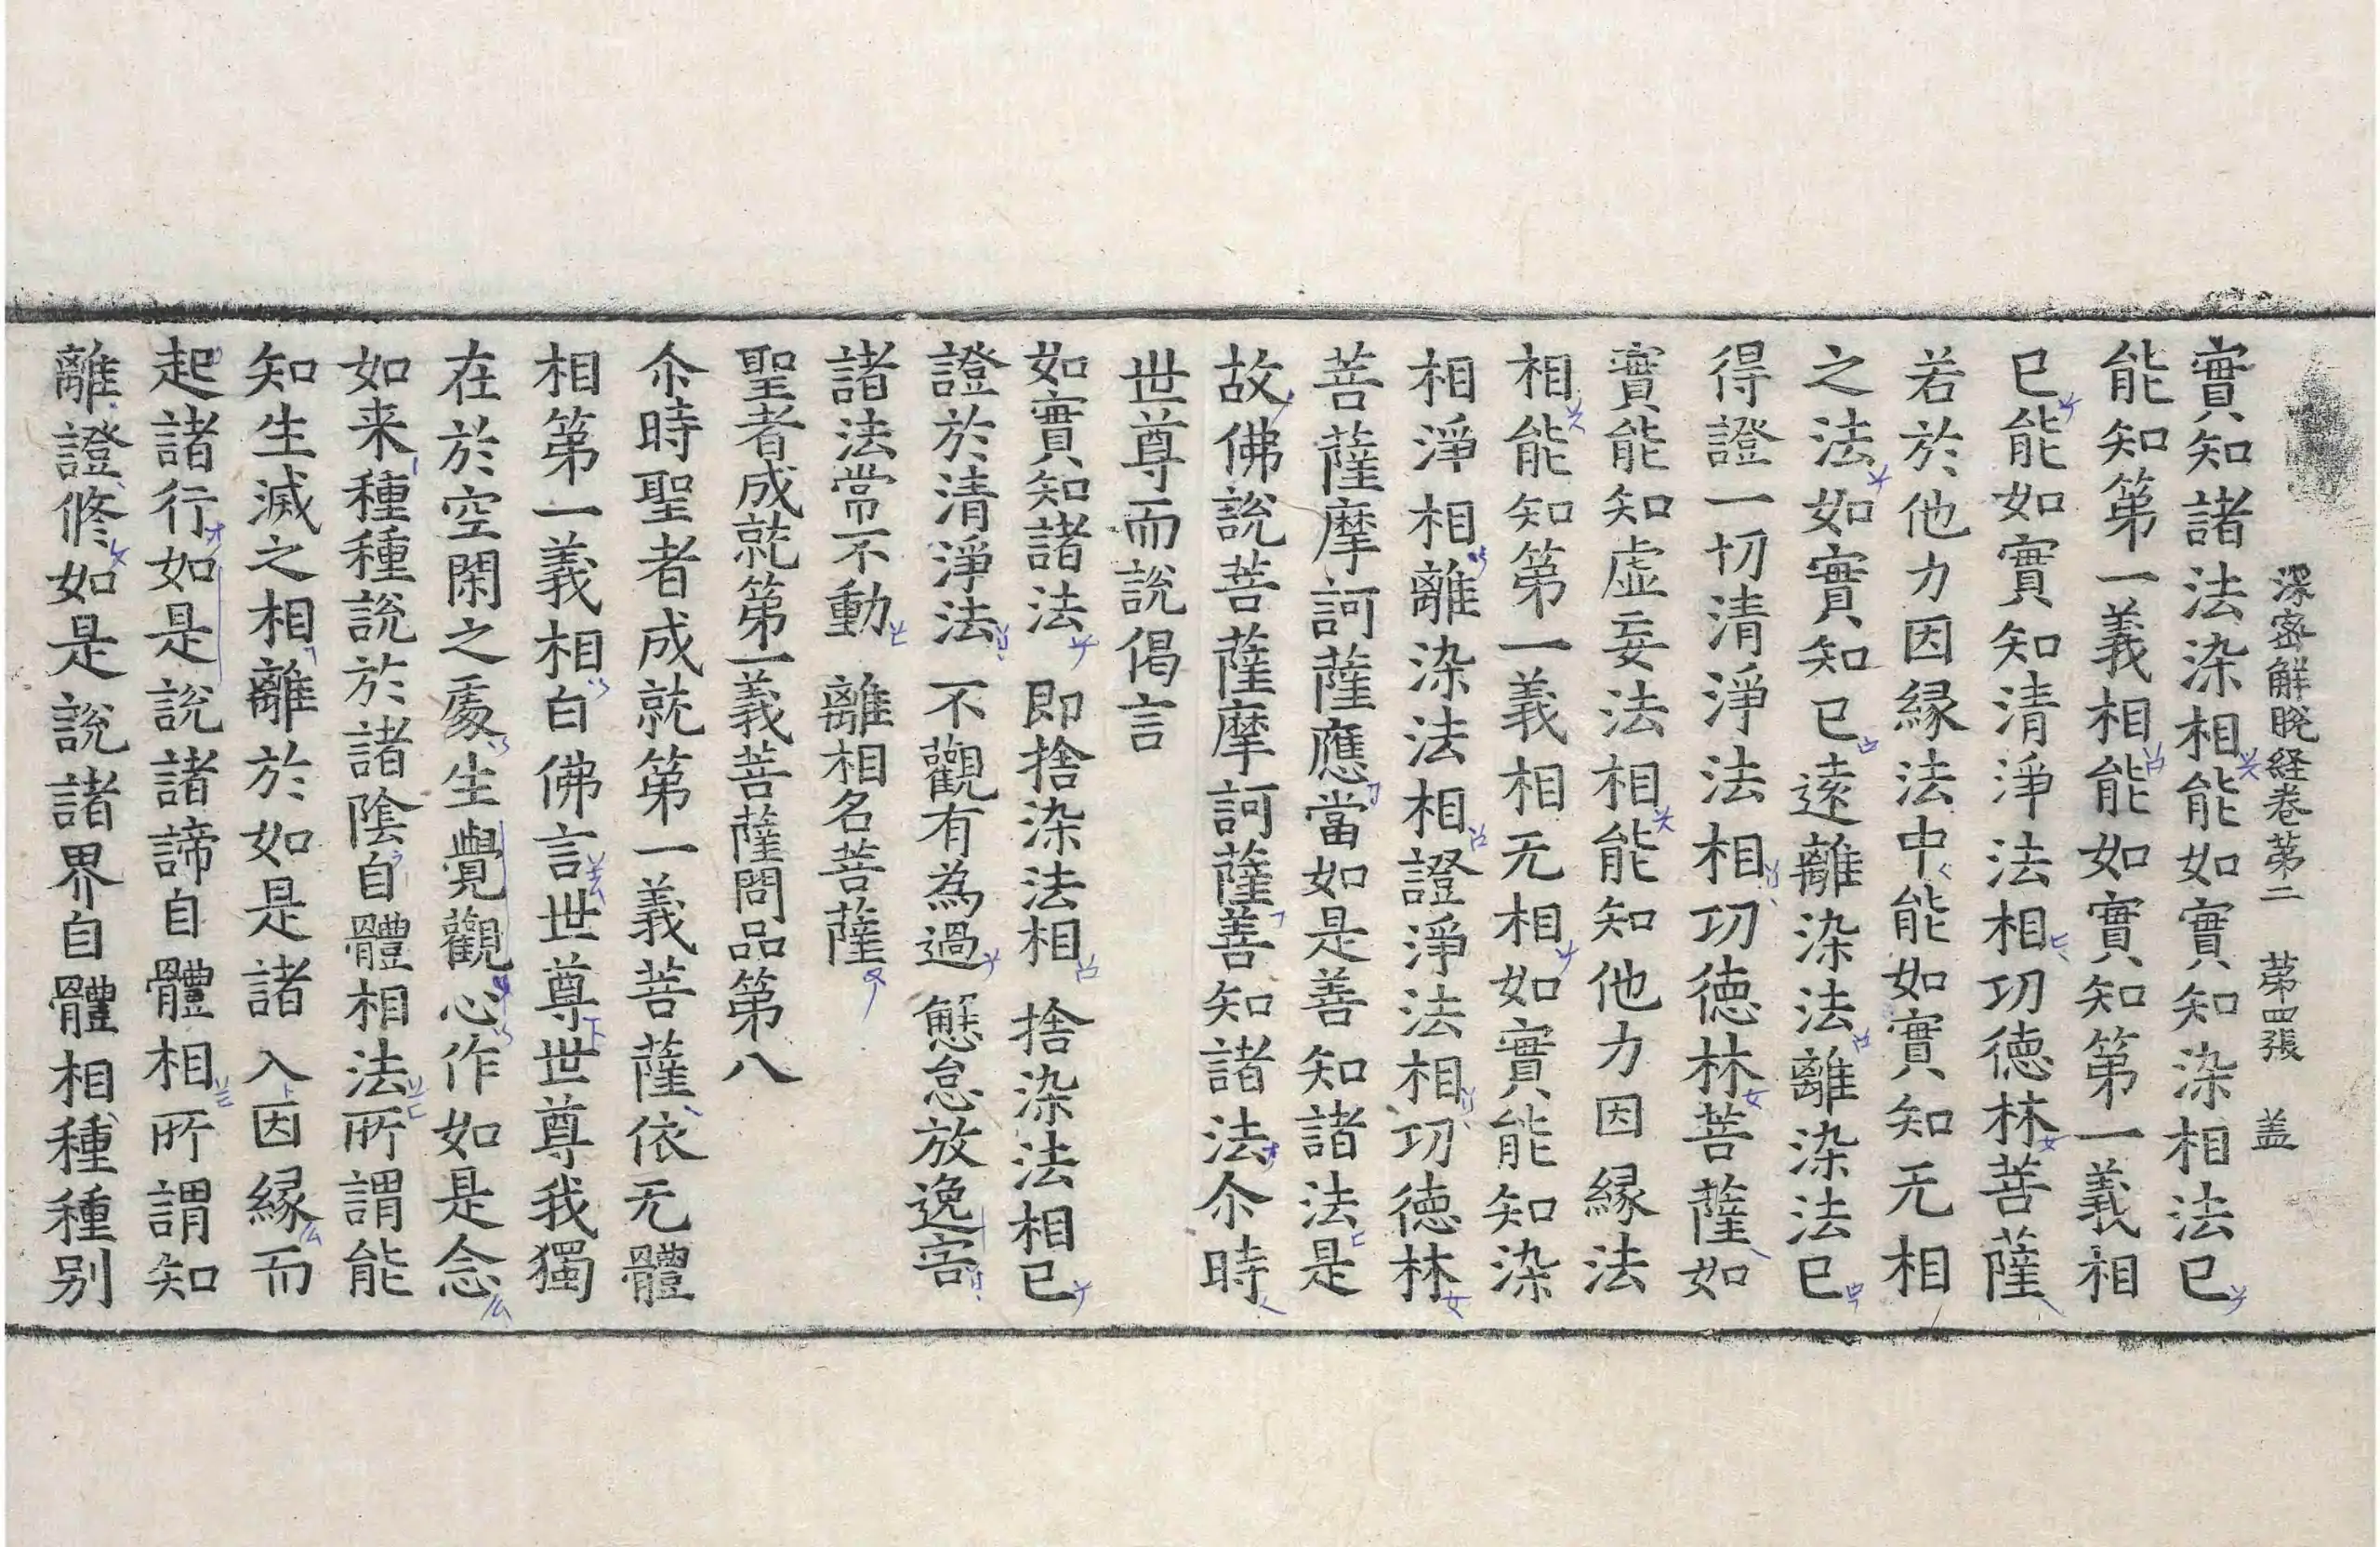 深密解脫経卷第二　第四張　盖
實知諸法染相能如實知染相法已
能知第一義相能如實知第一義相
已能如實知清淨法相功德林菩薩
若於他力因縁法中能如實知无相
之法如實知已遠離染法離染法已
得證一切清淨法相功德林菩薩如
實能知虛妄法相能知他力因縁法
相能知第一義相无相如實能知染
相淨相離染法相證淨法相功德林
菩薩摩訶薩應當如是善知諸法是
故佛說菩薩摩訶薩善知諸法尒時
世尊而說偈言
如實知諸法　即捨染法相　捨染法相已
證於清淨法　不觀有為過　懈怠放逸害
諸法常不動　離相名菩薩
聖者成就第一義菩薩問品第八
尒時聖者成就第一義菩薩依无體
相第一義相白佛言世尊世尊我獨
在於空閑之處生覺觀心作如是念
如来種種說於諸陰自體相法所謂能
知生滅之相離於如是諸入因縁而
起諸行如是說諸諦自體相所謂知
離證修如是說諸界自體相種種别